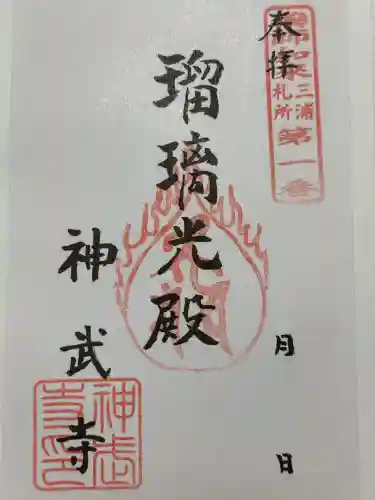 奉拝
三浦
札所
第一番
瑠璃光殿
神武寺
月
日